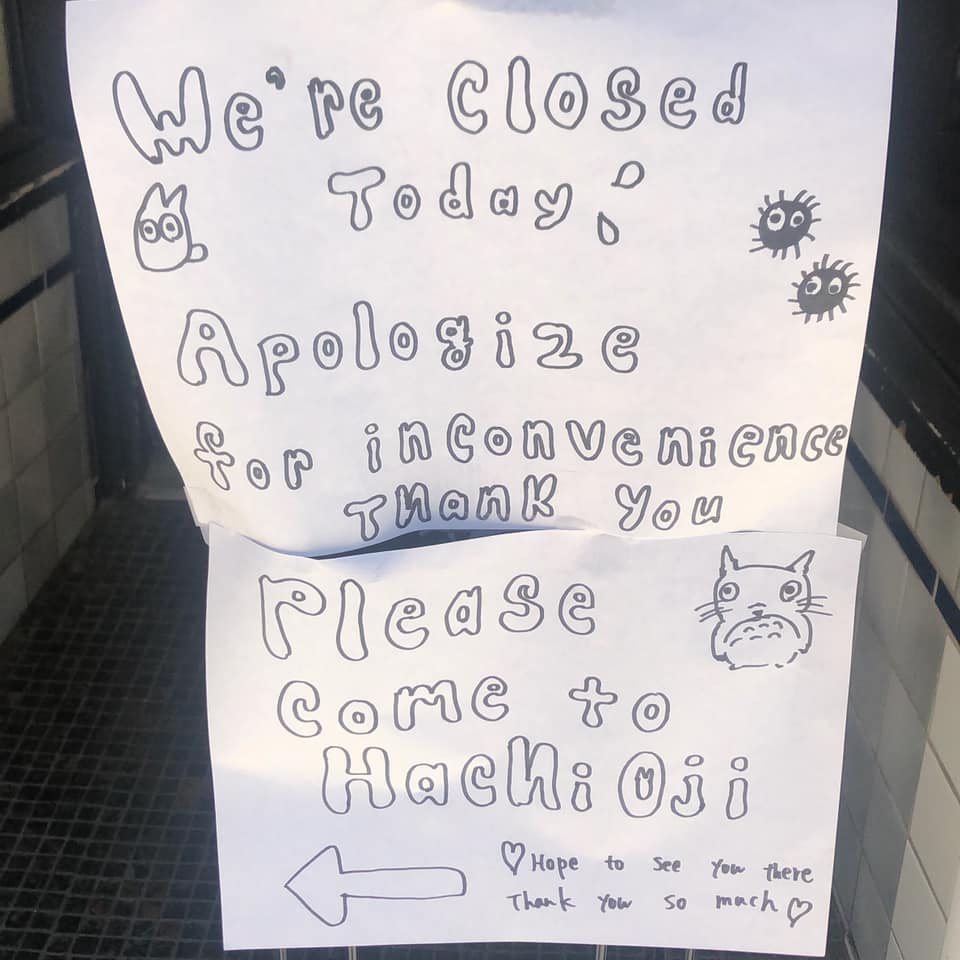 We're Closed
Today
Apologize
for inconvenience
Thank You
Please
Come to
Hachi Oji
♡ Hope to see you there
Thank You so much ♡